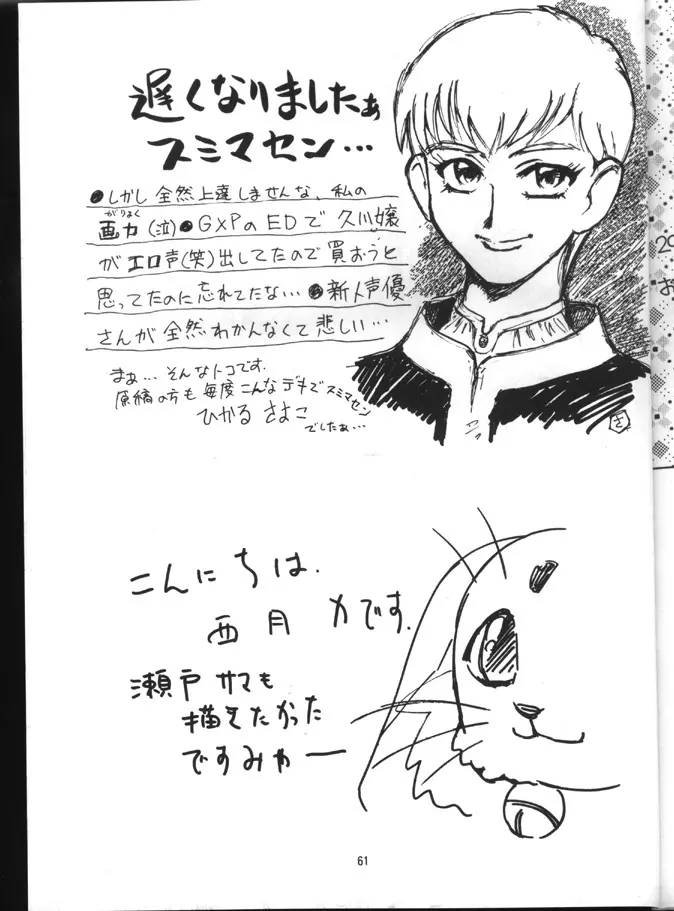 遅くなりましたぁ
スミマセン…
●しかし全然上達しませんな、私の
画力(泣)●GXPのEDで久川嬢
がりょく
がエロ声(笑)出してたので買おうと
思ってたのに忘れてたな…●新人声優
さんが全然わかんなくて悲しい…
まぁ…そんなトコです.
原稿の方も毎度こんなデキでスミマセン
ひかる さよこ
でしたぁ…
さ
こんにちは.
西月 力です.
瀬戸サマも
描きたかった
ですみゃー
61